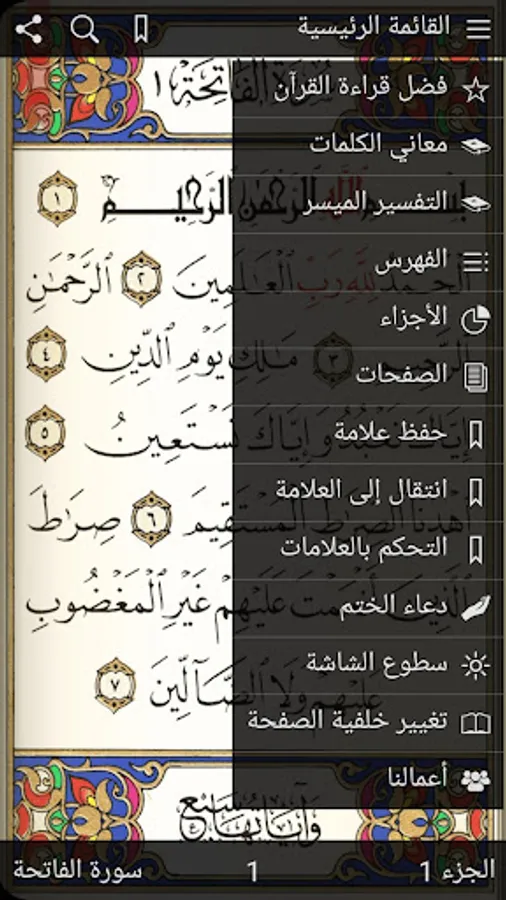 القائمة الرئيسية
سورة الفاتحة ١
فضل قراءة القرآن
معاني الكلمات
التفسير الميسر
الفهرس
الأجزاء
الصفحات
حفظ علامة
انتقال إلى العلامة
التحكم بالعلامات
دعاء الختم
سطوع الشاشة
تغيير خلفية الصفحة
أعمالنا
بسم الله الرحمن الرحيم ١
الحمد لله رب العالمين ٢ الرحمن
الرحيم ٣ ملك يوم الدين ٤
إياك نعبد وإياك نستعين ٥
اهدنا الصرط المستقيم ٦ صرط
الذين أنعمت عليهم غير المغضوب
عليهم ولا الضآلين ٧
وآياتها سبع
الجزء 1
1
سورة الفاتحة